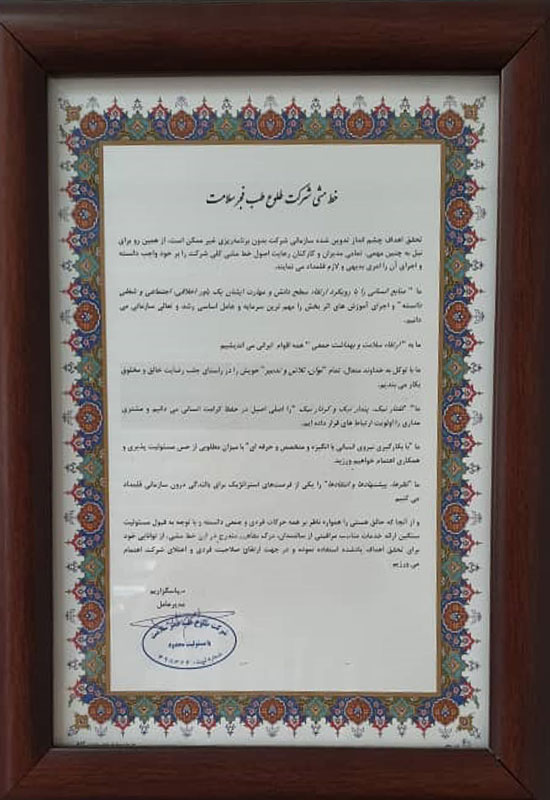 خط مشی شرکت طلوع طب فجر سلامت
تحقق اهداف چشم انداز تدوین شده سازمانی شرکت بدون برنامه‌ریزی غیر ممکن است، از همین رو برای
نیل به چنین مهمی، تمامی مدیران و کارکنان رعایت اصول خط مشی کلی شرکت را بر خود واجب دانسته
و اجرای آن را امری بدیهی و لازم قلمداد می نمایند.
ما " منابع انسانی را با رویکرد ارتقاء سطح دانش و مهارت ایشان یک باور اخلاقی، اجتماعی و شغلی
دانسته" و اجرای آموزش های اثر بخش را مهم ترین سرمایه و عامل اساسی رشد و تعالی سازمانی می
دانیم.
ما به "ارتقاء سلامت و بهداشت جمعی " همه اقوام ایرانی می اندیشیم
ما با توکل به خداوند متعال، تمام "توان، تلاش و تدبیر" خویش را در راستای جلب رضایت خالق و مخلوق
بکار می بندیم.
ما" گفتار نیک، پندار نیک و کردار نیک "را اصلی اصیل در حفظ کرامت انسانی می دانیم و مشتری
مداری را اولویت ارتباط های قرار داده ایم.
ما "با بکارگیری نیروی انسانی با انگیزه و متخصص و حرفه ای" با میزان مطلوبی از حس مسئولیت پذیری و
همکاری اهتمام خواهیم ورزید.
ما "نظرها، پیشنهادها و انتقادها" را یکی از فرصت‌های استراتژیک برای بالندگی درون سازمانی قلمداد
می کنیم
و از آنجا که خالق هستی را همواره ناظر بر همه حرکات فردی و صنفی دانسته و با توجه به قبول مسئولیت
سنگین ارائه خدمات مراقبتی از سالمندان، درک مفاهیم مندرج در این خط مشی، از توانایی خود
برای تحقق اهداف یادشده استفاده نموده و در جهت ارتقای صلاحیت فردی و اعتلای شرکت اهتمام
می ورزیم
سپاسگزاریم
مدیرعامل
شرکت طلوع طب فجر سلامت
با مسئولیت محدود
شماره ثبت: